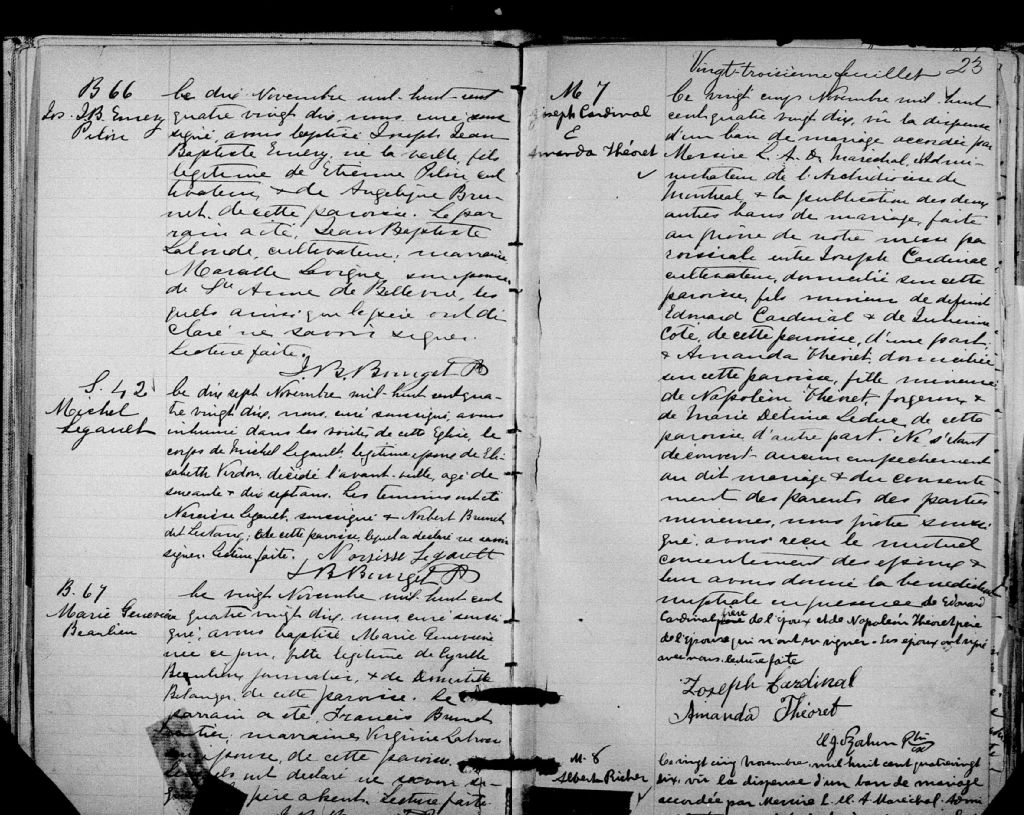 B 66
Jos. J.B. Emery
Pilon
Le dix Novembre mil-huit-cent
quatre vingt dix, nous, curé sous
signé, avons baptisé Joseph Jean
Baptiste Emery, né la veille, fils
légitime de Etienne Pilon cul
tivateur, & de Angelique Bru-
net, de cette paroisse. Le par
rain a été, Jean Baptiste
Lalonde, cultivateur, marraine
Lavigne, son épouse,
de Ste Anne de Bellevue, les
quels ainsi que le père ont dé
claré ne savoir signer.
Lecture faite.
J B. Bourget Ptr
S. 42
Michel
Legault
Le dix sept Novembre mil-huit cent qua-
tre vingt dix, nous, curé soussigné, avons
inhumé dans les voûtes de cette Eglise, le
corps de Michel Legault, légitime époux de Eli-
sabeth Verdon, décédé l'avant-veille, agé de
soixante & dix sept ans. Les témoins ont été
Narcisse Legault, soussigné & Norbert Brunet
dit Lestang, de cette paroisse, lequel a déclaré ne savoir
signer. Lecture faite. Narsisse Legault
J B Bourget Ptr
B. 67
Marie Geneviève
Beaulieu
Le vingt Novembre mil-huit cent
quatre vingt dix, nous, curé soussi-
gné, avons baptisé Marie Geneviève
née ce jour, fille légitime de Cyrille
Beaulieu, journalier, & de Domitille
Belanger, de cette paroisse. Le
parrain a été, Francis Brunet
rentier, marraine Virginie
son épouse, de cette paroisse,
lesquels ont déclaré ne savoir si-
gner père absent. Lecture faite.
J B Bourget
Vingt-troisième feuillet 23
M 7
Joseph Cardinal
&
Amanda Théoret
Le vingt cinq Novembre mil huit
cent quatre vingt dix, vû la dispense
d'un ban de mariage accordée par
Messire L. A. D. Maréchal, Admi-
nistrateur de l'Archidiocèse de
Montréal, & la publication des deux
autres bans de mariage, faite
au prône de notre messe pa
roissiale entre Joseph Cardinal
cultivateur, domicilié en cette
paroisse, fils mineur de défunt
Edouard Cardinal & de
Coté, de cette paroisse, d'une part,
& Amanda Théoret, domiciliée
en cette paroisse, fille mineure
de Napoléon Théoret, forgeron &
de Marie Delima Leduc, de cette
paroisse, d'autre part. Ne s'étant
découvert aucun empêchement
au dit mariage & du consente-
ment des parents des parties
mineures, nous prêtre soussi
gné, avons reçu le mutuel
consentement des époux &
leur avons donné la bénédiction
nuptiale en présence de Edouard
Cardinal frère de l'époux et de Napoléon Théoret père
de l'épouse qui n'ont su signer. Les époux ont signé
avec nous. Lecture faite
Joseph Cardinal
Amanda Théoret
M. 8
Albert Richer
Le vingt cinq novembre, mil huit cent quatre vingt
dix, vû la dispense d'un ban de mariage
accordée par Messire L. M. A Maréchal, Admi